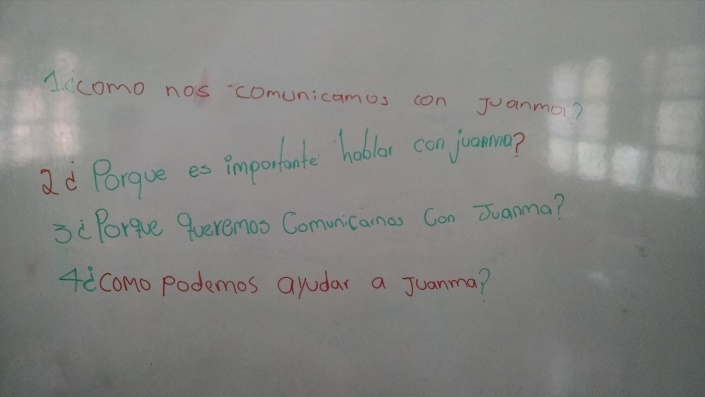 1¿como nos comunicamos con Juanma?
2¿ Porque es importante hablar con juanma?
3¿Porque queremos Comunicarnos Con Juanma?
4¿como podemos ayudar a Juanma?